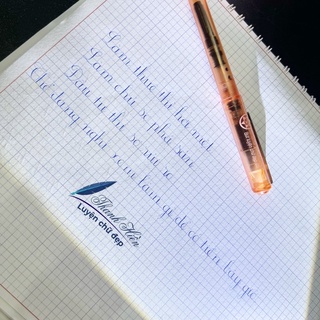 Làm thuê thì hơi mệt
Làm chủ sợ phá sản
Đầu tư thì sợ
Chỉ đang nghĩ xem nên làm gì để có tiền bây giờ
Thanh Hiên
Luyện chữ đẹp